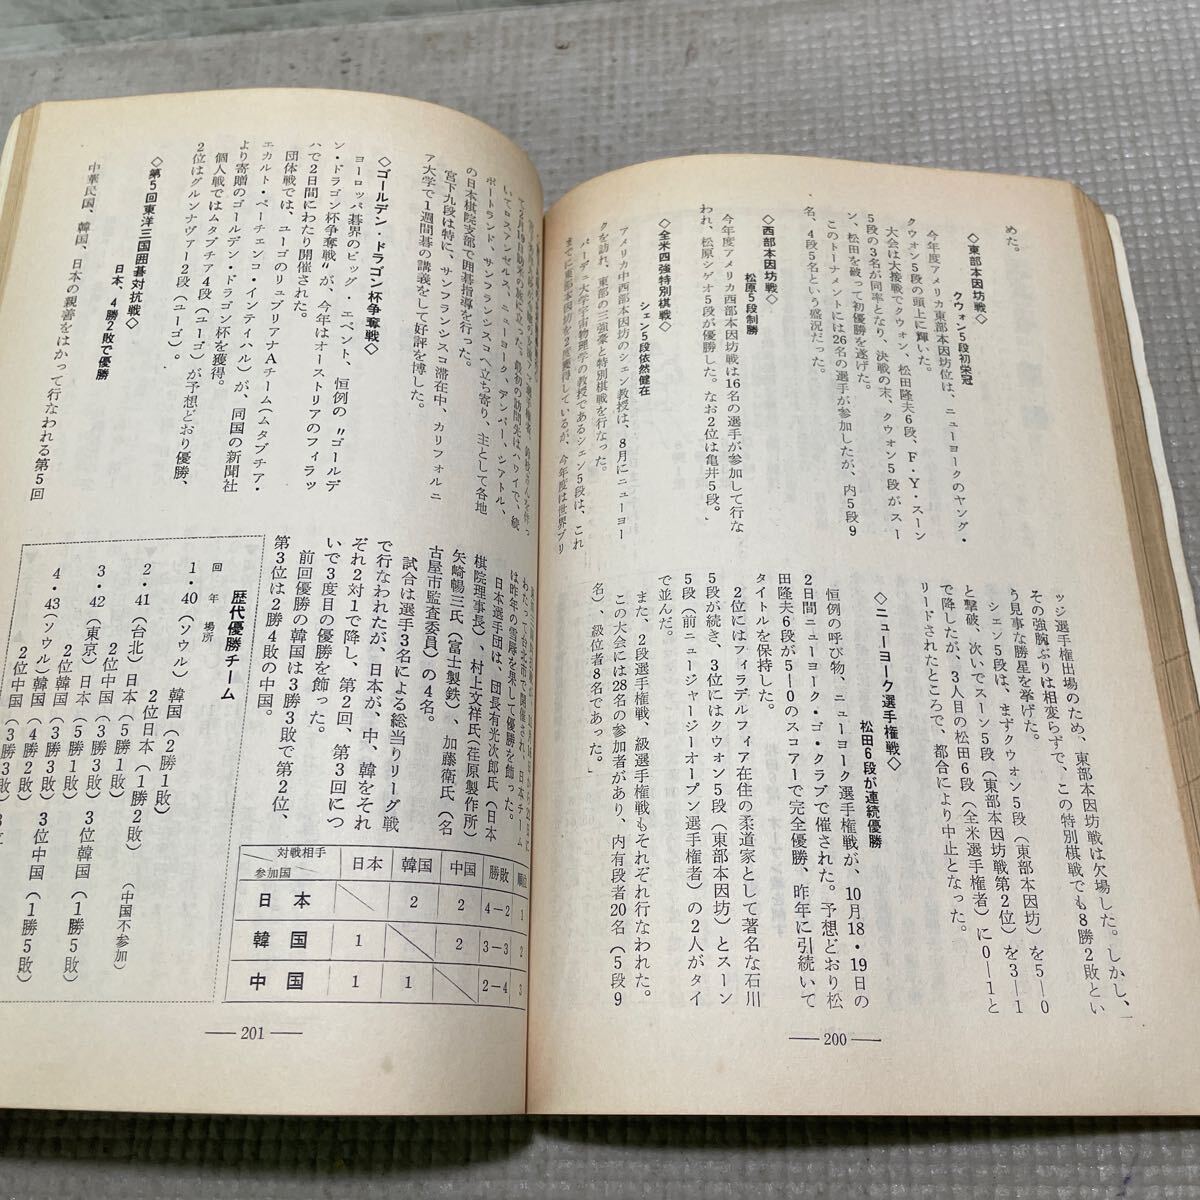 めた。
◇東部本因坊戦◇
クウォン5段初栄冠
今年度アメリカ東部本因坊位は、ニューヨークのヤング・
クウォン5段の頭上に輝いた。
大会は大接戦でクウォン、松田隆夫6段、F・Y・スーン
5段の3名が同率となり、決戦の末、クウォン5段がスー
ン、松田を破って初優勝を遂げた。
このトーナメントには26名の選手が参加したが、内5段9
名、4段5名という盛況だった。
◇西部本因坊戦◇
松原5段制勝
今年度アメリカ西部本因坊戦は16名の選手が参加して行な
われ、松原シゲオ5段が優勝した。なお2位は亀井5段。
◇全米四強特別棋戦◇
シェン5段依然健在
アメリカ中西部本因坊のシェン教授は、8月にニューヨー
クを訪れ、東部の三強豪と特別棋戦を行なった。
パーデュ大学宇宙物理学の教授であるシェン5段は、これ
までに東部本因坊を2度獲得しているが、今年度は世界ブリ
ッジ選手権出場のため、東部本因坊戦は欠場した。しかし、
その強腕ぶりは相変らずで、この特別棋戦でも8勝2敗とい
う見事な勝星を挙げた。
シェン5段は、まずクウォン5段（東部本因坊）を5―0
と撃破、次いでスーン5段（東部本因坊戦第2位）を3―1
で降したが、3人目の松田6段（全米選手権者）に0―1と
リードされたところで、都合により中止となった。
◇ニューヨーク選手権戦◇
松田6段が連続優勝
恒例の呼び物、ニューヨーク選手権戦が、10月18・19日の
2日間ニューヨーク・ゴ・クラブで催された。予想どおり松
田隆夫6段が5―0のスコアーで完全優勝、昨年に引続いて
タイトルを保持した。
2位にはフィラデルフィア在住の柔道家として著名な石川
5段が続き、3位にはクウォン5段（東部本因坊）とスーン
5段（前ニュージャージーオープン選手権者）の2人がタイ
で並んだ。
また、2段選手権戦、級選手権戦もそれぞれ行なわれた。
この大会には28名の参加者があり、内有段者20名（5段9
名）、級位者8名であった。
― 200 ―
いてロスアンゼルス、ニューヨーク、デンバー、シアトル、
ポートランド、サンフランシスコへ立ち寄り、主として各地
の日本棋院支部で囲碁指導を行った。
宮下九段は特に、サンフランシスコ滞在中、カリフォルニ
ア大学で1週間碁の講義をして好評を博した。
◇ゴールデン・ドラゴン杯争奪戦◇
ヨーロッパ碁界のビッグ・エベント、恒例の〝ゴールデ
ン・ドラゴン杯争奪戦〟が、今年はオーストリアのフィラッ
ハで2日間にわたり開催された。
団体戦では、ユーゴのリュブリアナAチーム（ムタブチア・
エカルト・ペーチェンコ・インティハル）が、同国の新聞社
より寄贈のゴールデン・ドラゴン杯を獲得。
個人戦ではムタブチア4段（ユーゴ）が予想どおり優勝、
2位はグルンナヴァー2段（ユーゴ）。
◇第5回東洋三国囲碁対抗戦◇
日本、4勝2敗で優勝
中華民国、韓国、日本の親善をはかって行なわれる第5回
は昨年の雪辱を果して優勝を飾った。
日本選手団は、団長有光次郎氏（日本
棋院理事長）、村上文祥氏（荏原製作所）
矢崎暢三氏（富士製鉄）、加藤衛氏（名
古屋市監査委員）の4名。
試合は選手3名による総当りリーグ戦
で行なわれたが、日本が、中、韓をそれ
ぞれ2対1で降し、第2回、第3回につ
いで3度目の優勝を飾った。
前回優勝の韓国は3勝3敗で第2位、
第3位は2勝4敗の中国。
対戦相手 参加国 日本 韓国 中国 勝敗 順位
日本 2 2 4―2 1
韓国 1 2 3―3 2
中国 1 1 2―4 3
歴代優勝チーム
回 年 場所
1・40（ソウル）韓国（2勝1敗）
2位日本（1勝2敗）（中国不参加）
2・41（台北）日本（5勝1敗）
2位中国（3勝3敗）3位韓国（1勝5敗）
3・42（東京）日本（5勝1敗）
2位韓国（3勝3敗）3位中国（1勝5敗）
4・43（ソウル）韓国（4勝2敗）
― 201 ―